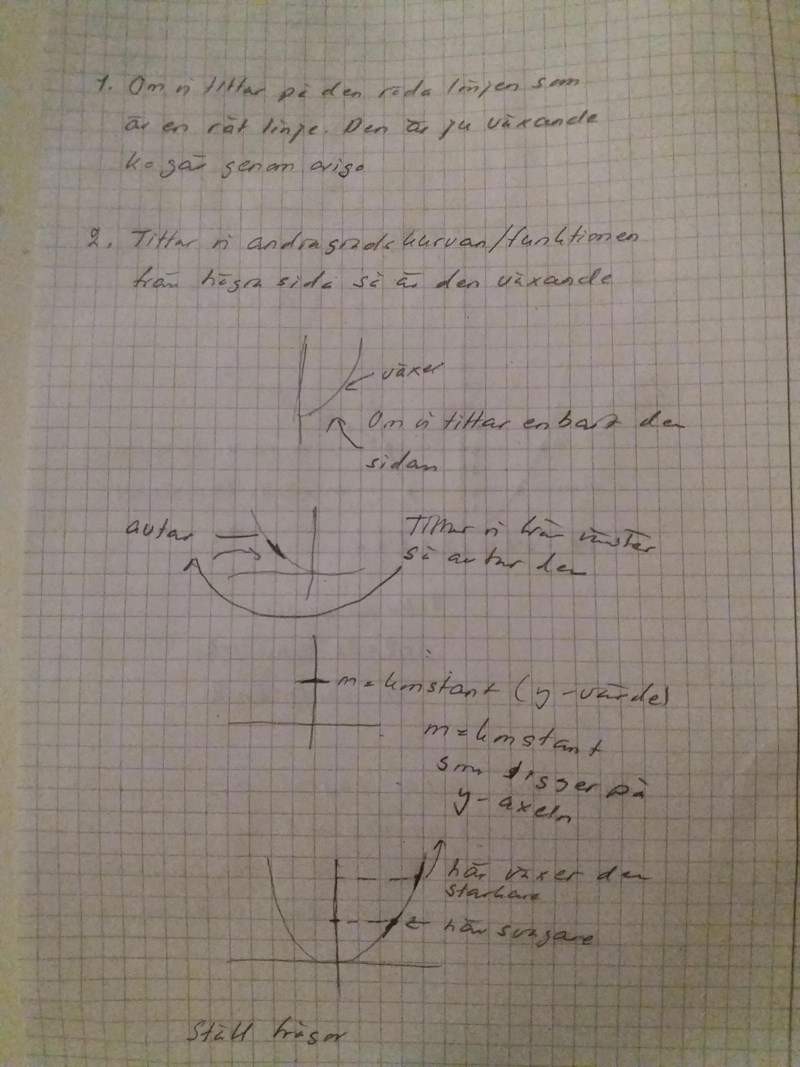 1. Om vi tittar på den röda linjen som
är en rät linje. Den är ju växande
ho går genom origo
2. Tittar vi andragradskurvan/funktionen
från högra sida så är den växande
växer
Om vi tittar enbart den
sidan
avtar
Tittar vi från vänster
så avtar den
m = konstant (y-värde)
m = konstant
som ligger på
y-axeln
här växer den
starkare
här svagare
Ställ frågor